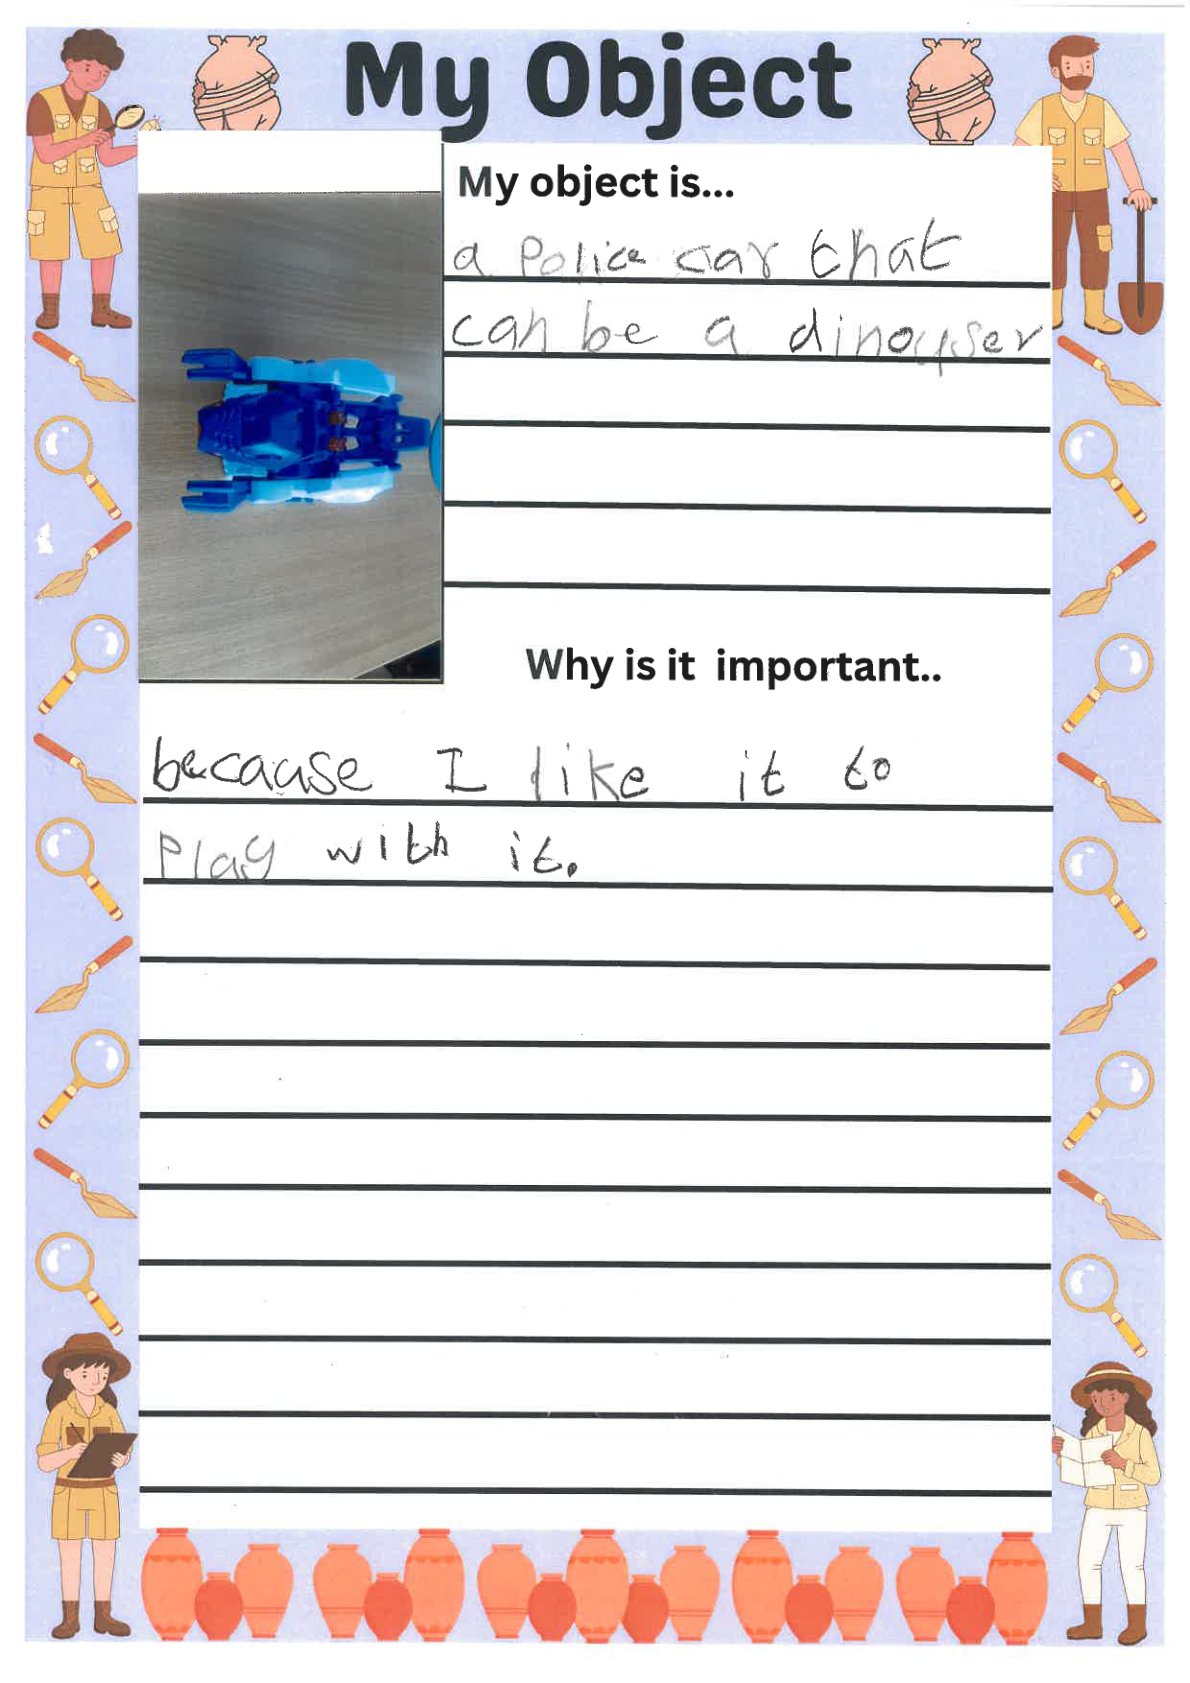 My Object
My object is...
a Police car that
can be a dinouser
Why is it important..
because I like it to
Play with it.